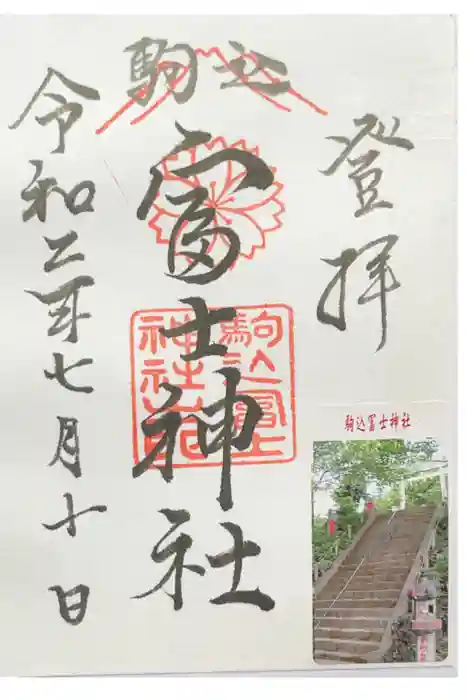 登拝
駒込
富士神社
令和二年七月十日
駒込富士神社
駒込冨士神社